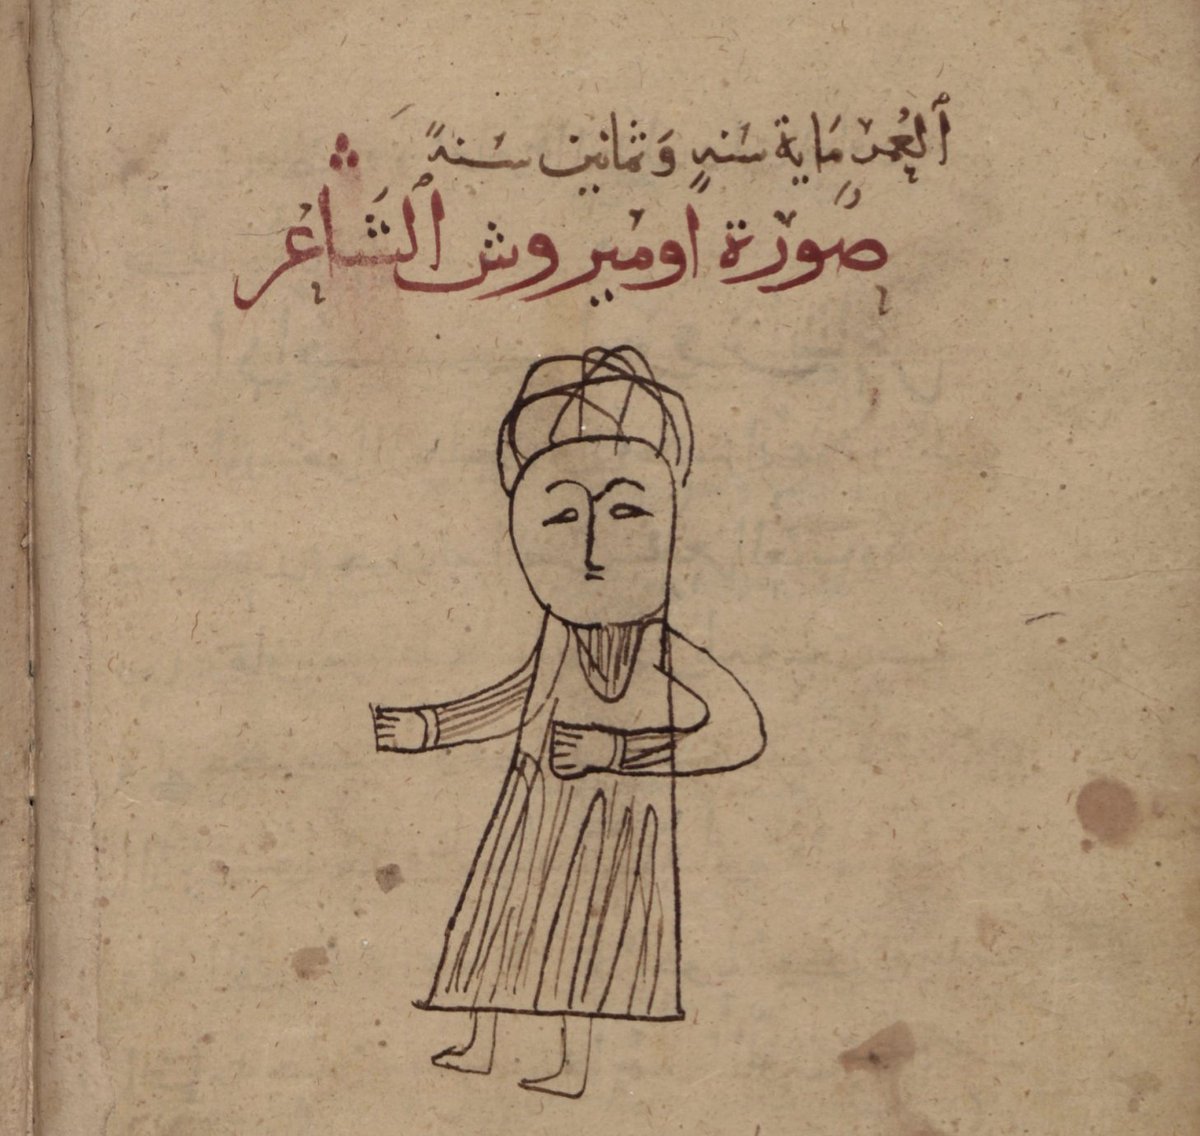 ٱلعُمر مَاية سَنهٍ وَثمانين سَنهً
صُورة اوميروش ٱلشَاعر